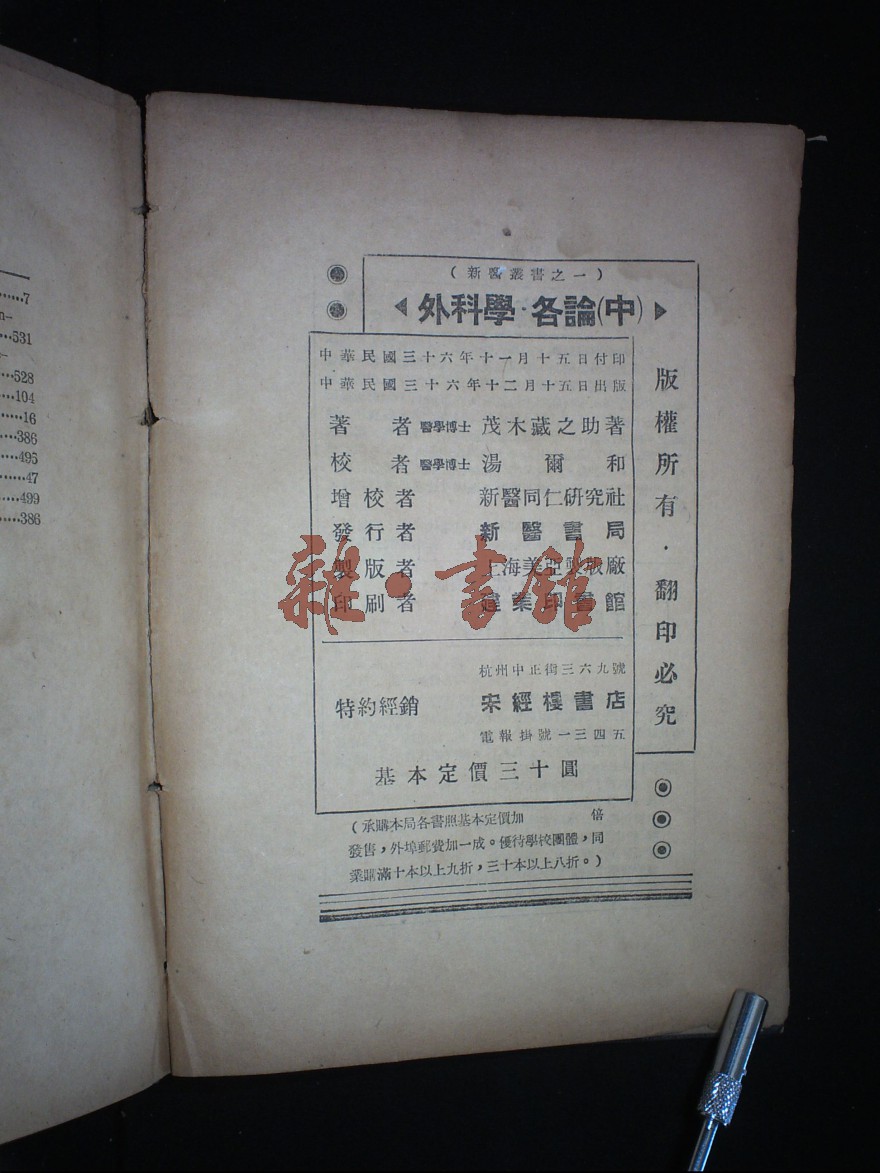 ……7
n-
…531
-
…528
…104
……16
…386
…495
……47
…499
…386
(新醫叢書之一)
外科學·各論(中)
中華民國三十六年十一月十五日付印
中華民國三十六年十二月十五日出版
著者 醫學博士 茂木藏之助著
校者 醫學博士 湯爾和
增校者 新醫同仁研究社
發行者 新醫書局
製版者 上海美亞製版廠
印刷者 建業印書館
雜·書館
杭州中正街三六九號
特約經銷 宋經樓書店
電報掛號一三四五
基本定價三十圓
版權所有·翻印必究
(承購本局各書照基本定價加 倍
發售,外埠郵費加一成。優待學校團體,同
業購滿十本以上九折,三十本以上八折。)